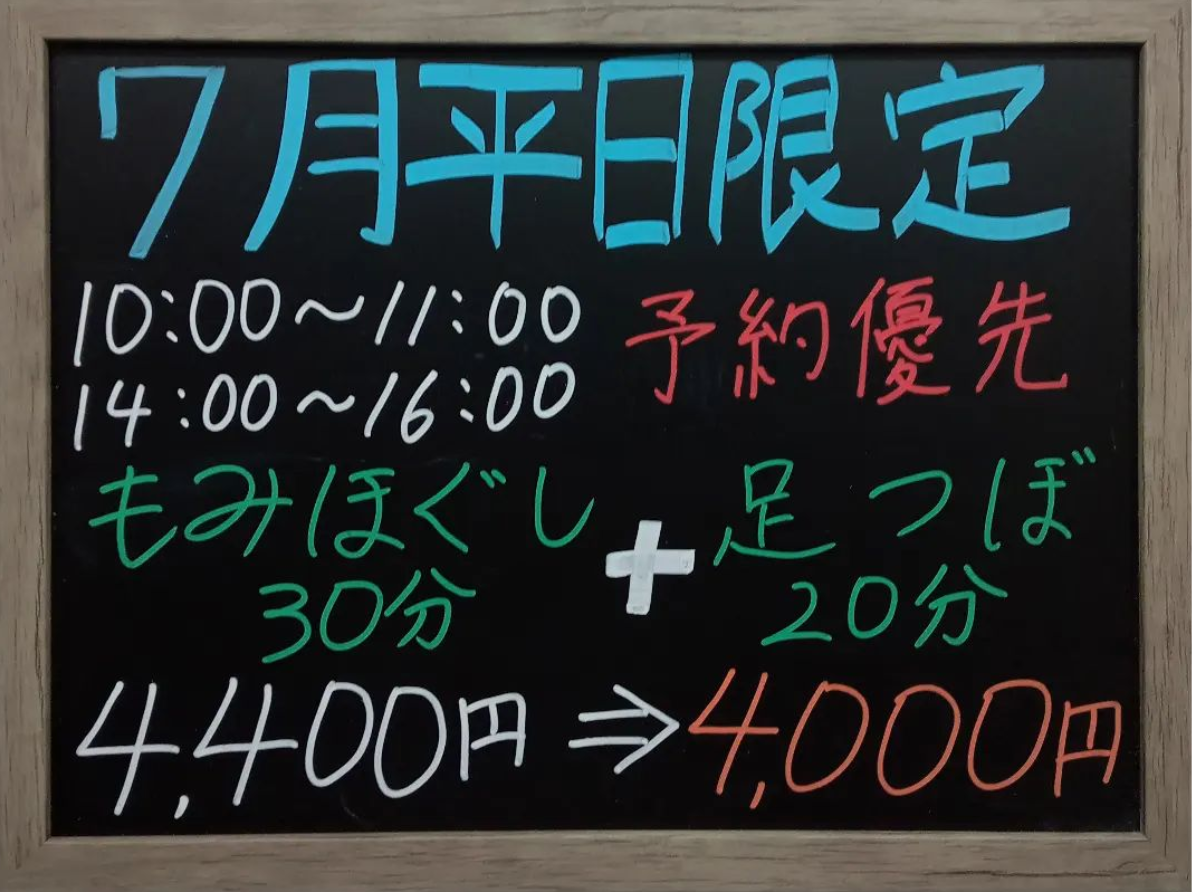 7月平日限定
10:00～11:00 予約優先
14:00～16:00
もみほぐし + 足つぼ
30分 20分
4,400円 ⇒ 4,000円